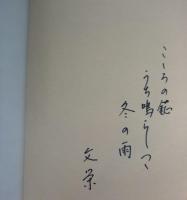 こころの鉦
うち鳴らしつつ
冬の雨
文栄